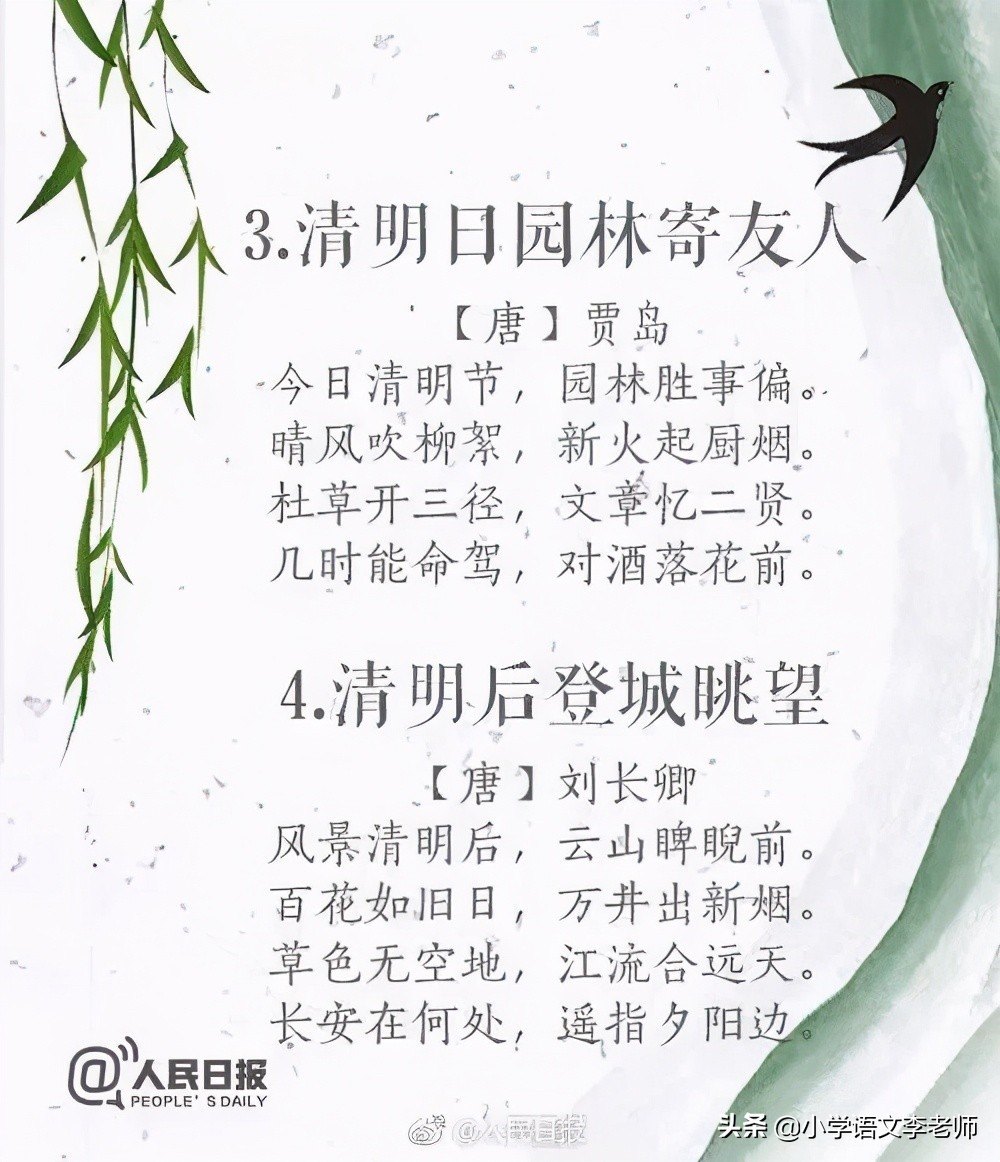 3.清明日园林寄友人
【唐】贾岛
今日清明节，园林胜事偏。
晴风吹柳絮，新火起厨烟。
杜草开三径，文章忆二贤。
几时能命驾，对酒落花前。
4.清明后登城眺望
【唐】刘长卿
风景清明后，云山睥睨前。
百花如旧日，万井出新烟。
草色无空地，江流合远天。
长安在何处，遥指夕阳边。
@人民日报
PEOPLE'S DAILY
@人民日报
头条 @小学语文李老师